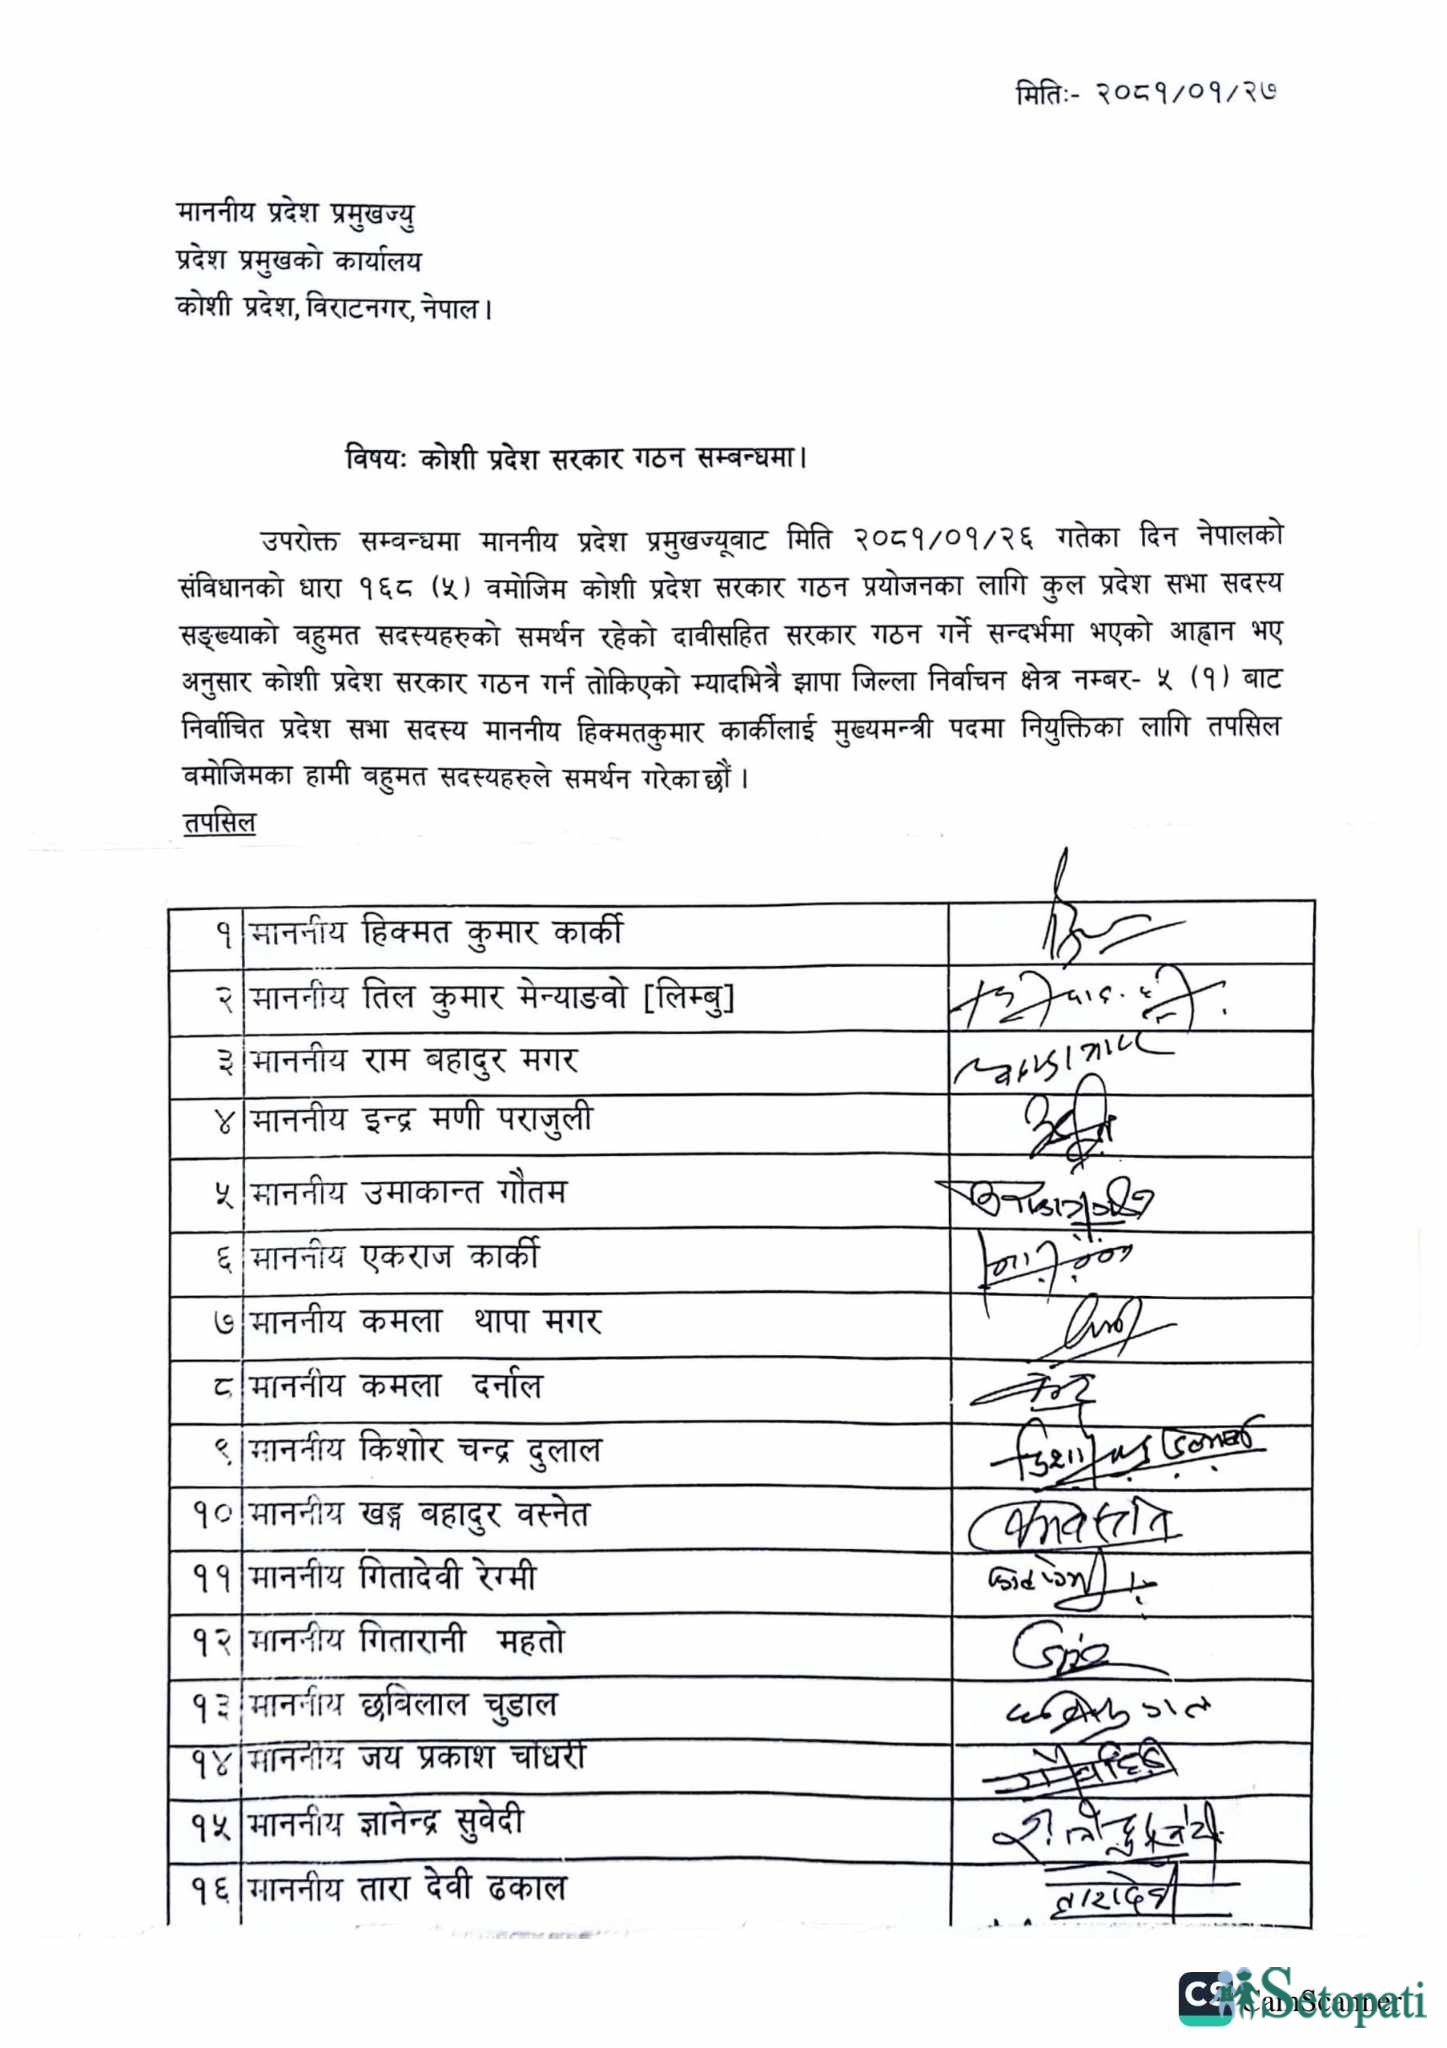 मितिः- २०८१/०१/२७
माननीय प्रदेश प्रमुखज्यु
प्रदेश प्रमुखको कार्यालय
कोशी प्रदेश, विराटनगर, नेपाल।
विषयः कोशी प्रदेश सरकार गठन सम्बन्धमा।
उपरोक्त सम्वन्धमा माननीय प्रदेश प्रमुखज्यूवाट मिति २०८१/०१/२६ गतेका दिन नेपालको
संविधानको धारा १६८ (५) वमोजिम कोशी प्रदेश सरकार गठन प्रयोजनका लागि कुल प्रदेश सभा सदस्य
सङ्ख्याको वहुमत सदस्यहरुको समर्थन रहेको दावीसहित सरकार गठन गर्ने सन्दर्भमा भएको आह्वान भए
अनुसार कोशी प्रदेश सरकार गठन गर्न तोकिएको म्यादभित्रै झापा जिल्ला निर्वाचन क्षेत्र नम्बर- ५ (१) बाट
निर्वाचित प्रदेश सभा सदस्य माननीय हिक्मतकुमार कार्कीलाई मुख्यमन्त्री पदमा नियुक्तिका लागि तपसिल
वमोजिमका हामी वहुमत सदस्यहरुले समर्थन गरेका छौं ।
तपसिल
१ माननीय हिक्मत कुमार कार्की
२ माननीय तिल कुमार मेन्याङवो [लिम्बु]
३ माननीय राम बहादुर मगर
४ माननीय इन्द्र मणी पराजुली
५ माननीय उमाकान्त गौतम
६ माननीय एकराज कार्की
७ माननीय कमला थापा मगर
८ माननीय कमला दर्नाल
९ माननीय किशोर चन्द्र दुलाल
१० माननीय खड्ग बहादुर वस्नेत
११ माननीय गितादेवी रेग्मी
१२ माननीय गितारानी महतो
१३ माननीय छविलाल चुडाल
१४ माननीय जय प्रकाश चौधरी
१५ माननीय ज्ञानेन्द्र सुवेदी
१६ माननीय तारा देवी ढकाल तारादेवी
CS CamScanner
Setopati